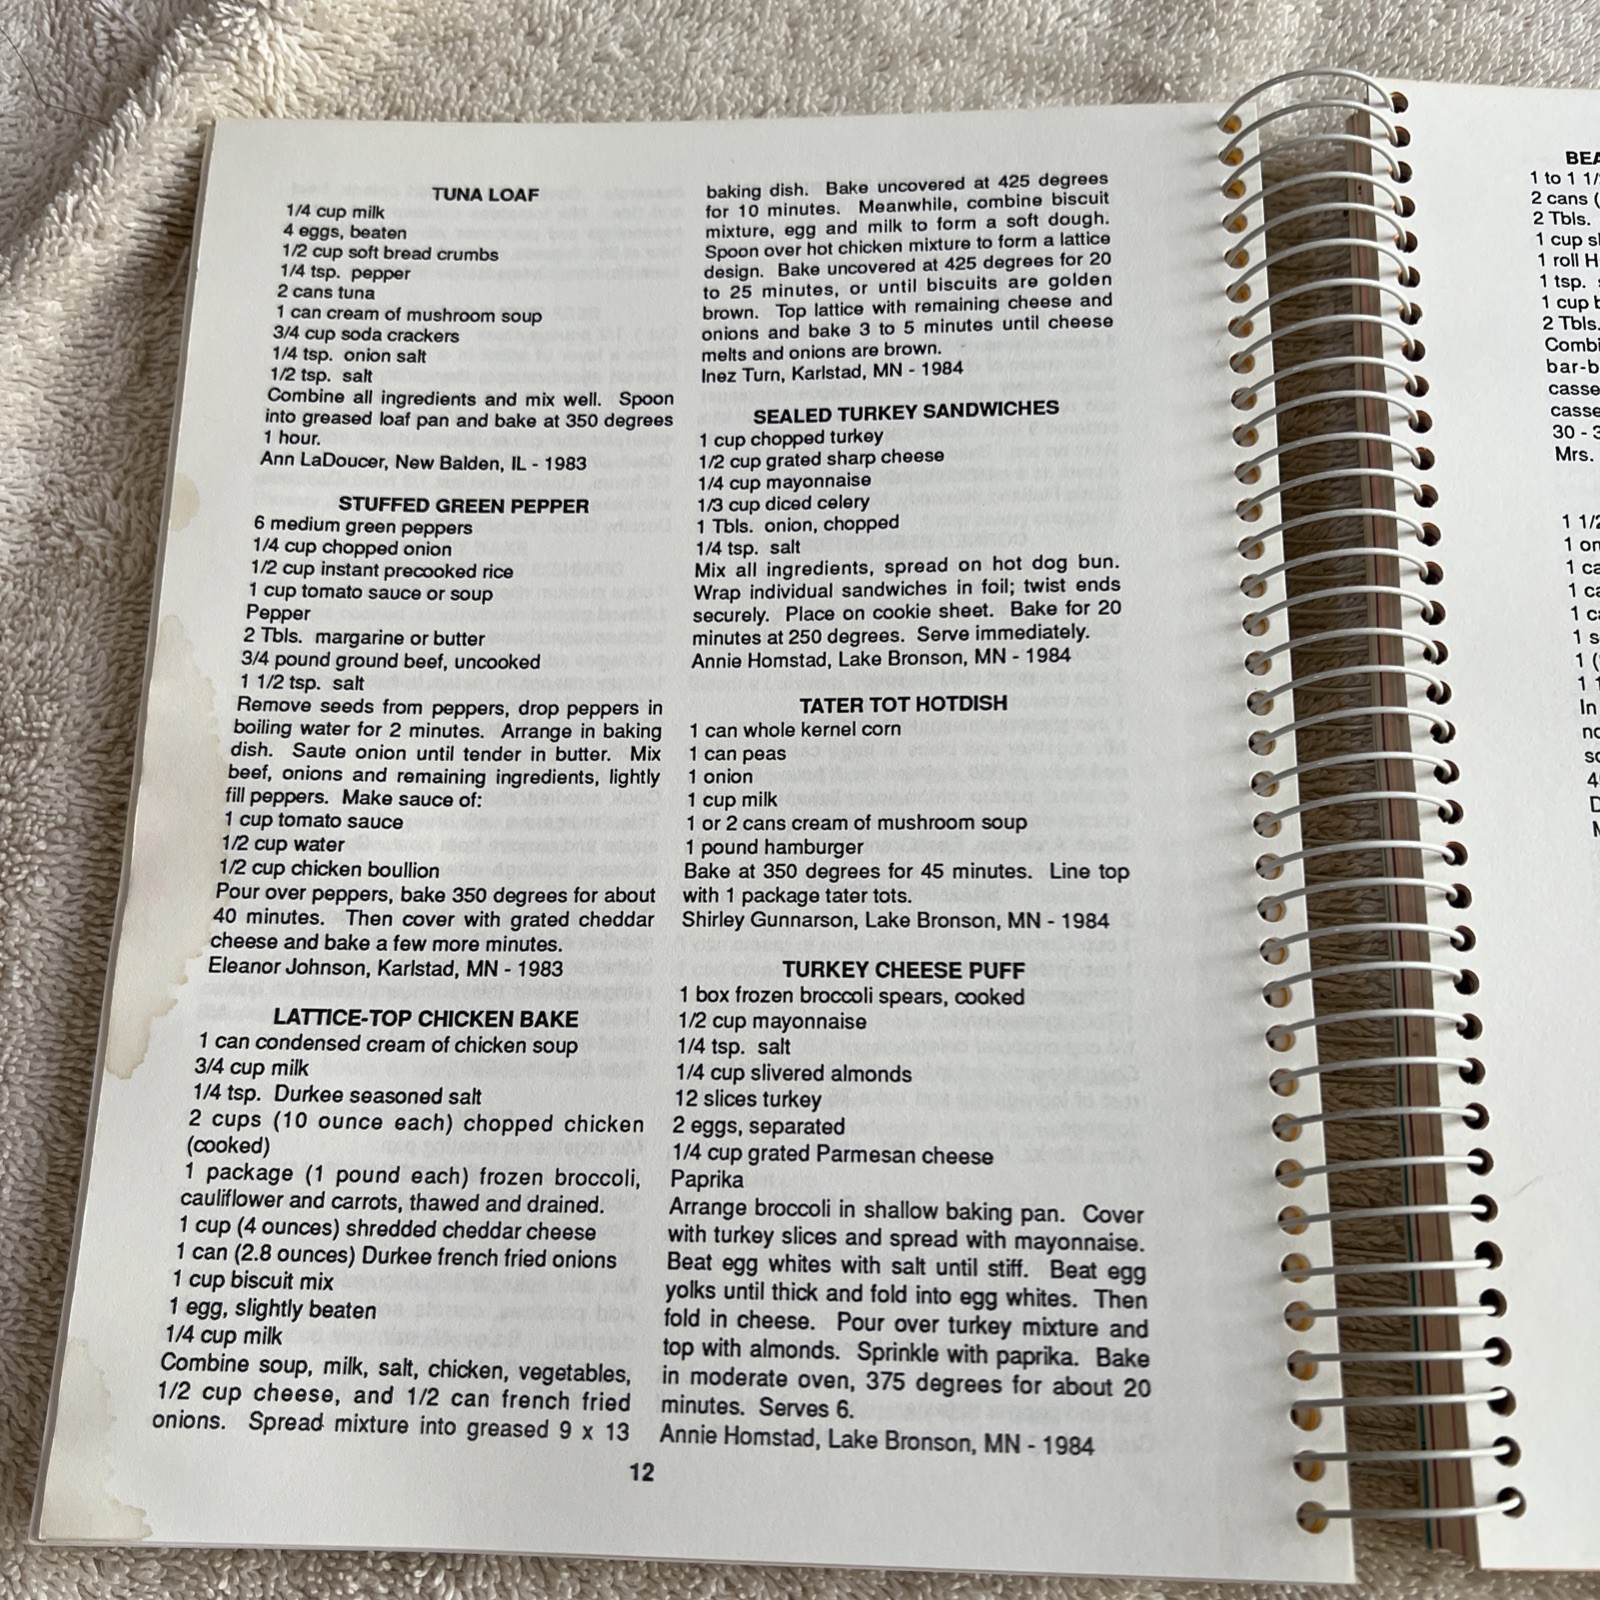 TUNA LOAF
1/4 cup milk
4 eggs, beaten
1/2 cup soft bread crumbs
1/4 tsp. pepper
2 cans tuna
1 can cream of mushroom soup
3/4 cup soda crackers
1/4 tsp. onion salt
1/2 tsp. salt
Combine all ingredients and mix well. Spoon
into greased loaf pan and bake at 350 degrees
1 hour.
Ann LaDoucer, New Balden, IL - 1983
STUFFED GREEN PEPPER
6 medium green peppers
1/4 cup chopped onion
1/2 cup instant precooked rice
1 cup tomato sauce or soup
Pepper
2 Tbls. margarine or butter
3/4 pound ground beef, uncooked
1 1/2 tsp. salt
Remove seeds from peppers, drop peppers in
boiling water for 2 minutes. Arrange in baking
dish. Saute onion until tender in butter. Mix
beef, onions and remaining ingredients, lightly
fill peppers. Make sauce of:
1 cup tomato sauce
1/2 cup water
1/2 cup chicken boullion
Pour over peppers, bake 350 degrees for about
40 minutes. Then cover with grated cheddar
cheese and bake a few more minutes.
Eleanor Johnson, Karlstad, MN - 1983
LATTICE-TOP CHICKEN BAKE
1 can condensed cream of chicken soup
3/4 cup milk
1/4 tsp. Durkee seasoned salt
2 cups (10 ounce each) chopped chicken
(cooked)
1 package (1 pound each) frozen broccoli,
cauliflower and carrots, thawed and drained.
1 cup (4 ounces) shredded cheddar cheese
1 can (2.8 ounces) Durkee french fried onions
1 cup biscuit mix
1 egg, slightly beaten
1/4 cup milk
Combine soup, milk, salt, chicken, vegetables,
1/2 cup cheese, and 1/2 can french fried
onions. Spread mixture into greased 9 x 13
baking dish. Bake uncovered at 425 degrees
for 10 minutes. Meanwhile, combine biscuit
mixture, egg and milk to form a soft dough.
Spoon over hot chicken mixture to form a lattice
design. Bake uncovered at 425 degrees for 20
to 25 minutes, or until biscuits are golden
brown. Top lattice with remaining cheese and
onions and bake 3 to 5 minutes until cheese
melts and onions are brown.
Inez Turn, Karlstad, MN - 1984
SEALED TURKEY SANDWICHES
1 cup chopped turkey
1/2 cup grated sharp cheese
1/4 cup mayonnaise
1/3 cup diced celery
1 Tbls. onion, chopped
1/4 tsp. salt
Mix all ingredients, spread on hot dog bun.
Wrap individual sandwiches in foil; twist ends
securely. Place on cookie sheet. Bake for 20
minutes at 250 degrees. Serve immediately.
Annie Homstad, Lake Bronson, MN - 1984
TATER TOT HOTDISH
1 can whole kernel corn
1 can peas
1 onion
1 cup milk
1 or 2 cans cream of mushroom soup
1 pound hamburger
Bake at 350 degrees for 45 minutes. Line top
with 1 package tater tots.
Shirley Gunnarson, Lake Bronson, MN - 1984
TURKEY CHEESE PUFF
1 box frozen broccoli spears, cooked
1/2 cup mayonnaise
1/4 tsp. salt
1/4 cup slivered almonds
12 slices turkey
2 eggs, separated
1/4 cup grated Parmesan cheese
Paprika
Arrange broccoli in shallow baking pan. Cover
with turkey slices and spread with mayonnaise.
Beat egg whites with salt until stiff. Beat egg
yolks until thick and fold into egg whites. Then
fold in cheese. Pour over turkey mixture and
top with almonds. Sprinkle with paprika. Bake
in moderate oven, 375 degrees for about 20
minutes. Serves 6.
Annie Homstad, Lake Bronson, MN - 1984
12
1 to 1
2 cans
2 Tbls.
1 cup
1 roll
1 tsp.
1 cup
2 Tbls.
30 -
Mrs.
In